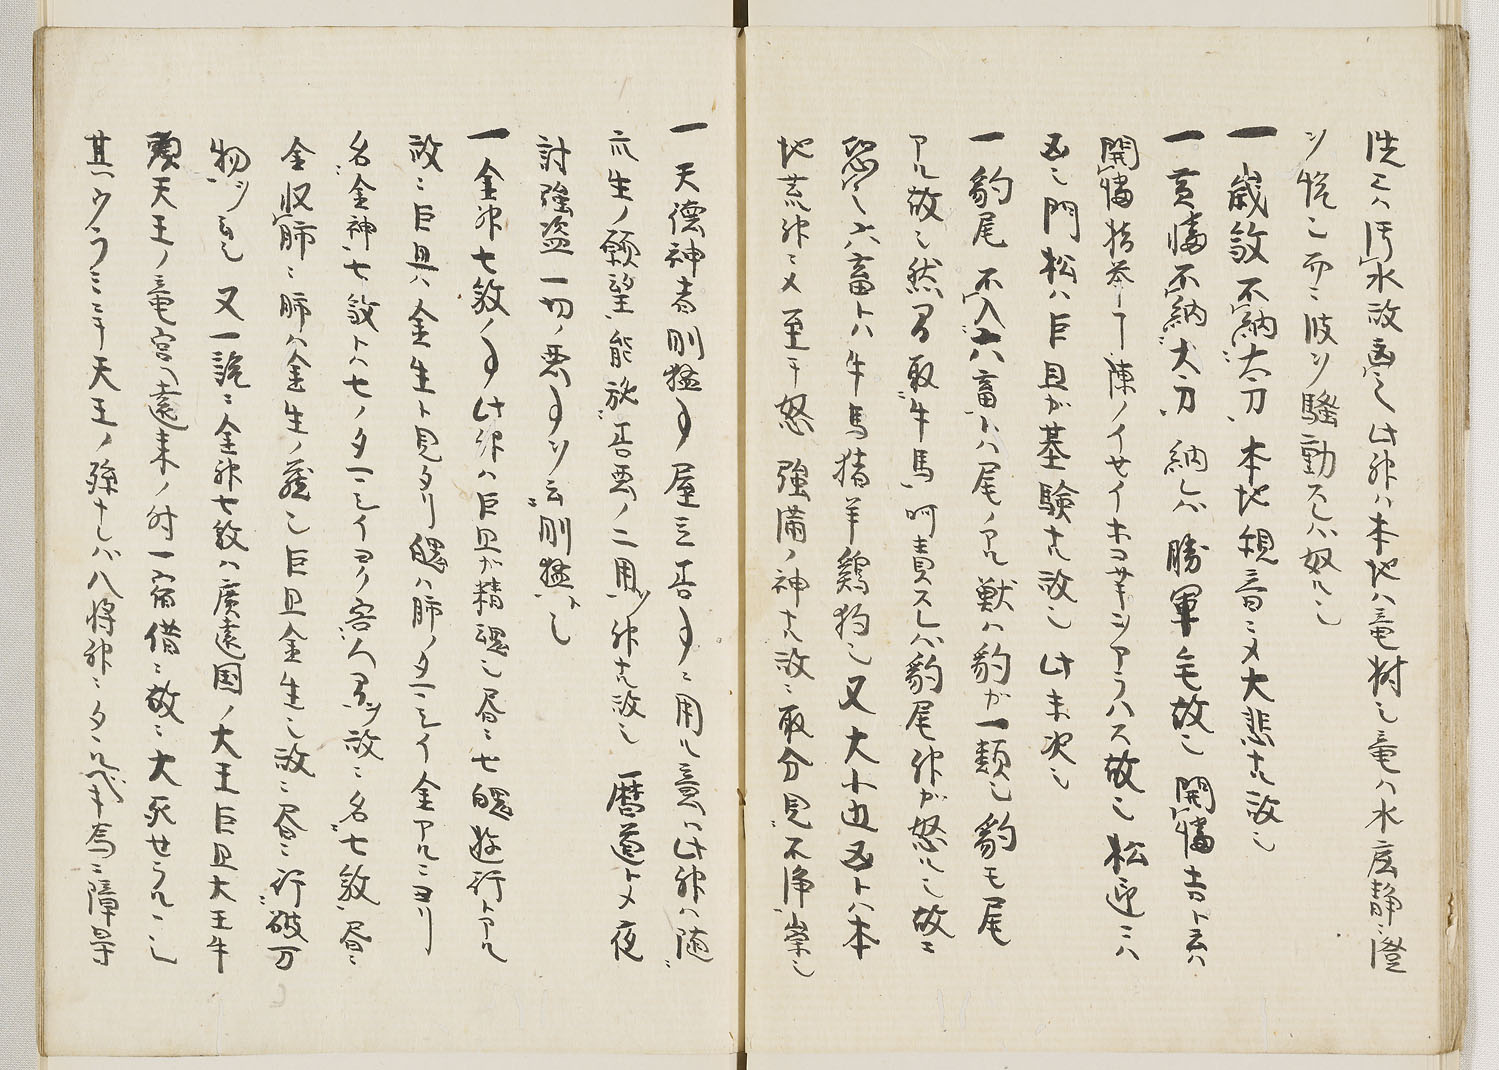 洗ニハ汚水故凶也此神ハ本地ハ竜樹也竜ハ水底静ニ澄
ツ悦ヒ而ニ波ツ騒動スレハ怒ル也
一歳敬不納大刀本地観音ニメ大悲ナル故也
一黄幡不納大刀納レバ勝軍毛故也開幡吉ト云ハ
開幡指挙テ陳ノイセイホコサキヲアラハス故也松迎ニハ
凶也門松ハ巨旦が墓験ナル故也此末次也
一豹尾不入六畜トハ尾ノアル獣ハ豹が一類也豹モ尾
アル故也然ルヲ取牛馬呵責スレバ豹尾神が怒ル也故ニ
恐也六畜トハ牛馬猪羊鶏狗也又大小迄凶トハ本
地荒神ニメ至テ怒強満ノ神ナル故ニ取分見不浄崇也
一天徳神者剛猛ノ事屋ニ吾事ニ用ル意ハ此神ハ随
衆生ノ願望能施吾悪ノ二用ツ神ナル故也暦道トメ夜
討強盗一切ノ悪事ツ云剛猛ト也
一金神七敬ノ事此神ハ巨旦が精魂也昼ニ七魄遊行トアル
故ニ巨旦ハ金生ト見タリ魄ハ肺ノタマシイ金アルニヨリ
名金神七敬トハ七ノタマシイヨク害人ヲルツ故ニ名七敬昼ニ
金収肺ニ肺ハ金生ノ蔵也巨旦金生也故ニ昼ニ行破万
物ツ也又一説ニ金神七敬ハ広遠国ノ大王巨旦大王牛
頭天王ノ竜宮ヘ遠来ノ時一宿借ニ故ニ大死セラルヽ也
其ウラミニテ天王ノ孫ナレバ八将神ニタヽルベキ為ニ障㝵